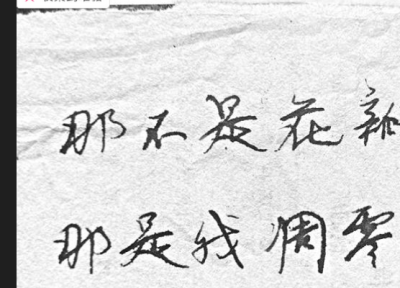 那不是花瓣
那是我凋零